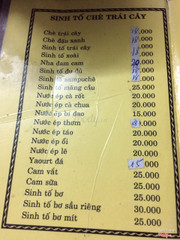 SINH TỐ CHÈ TRÁI CÂY
Chè trái cây .000
Chè đậu xanh .000
Sinh tố trái cây .000
Sinh tố xoài .000
Nha đam cam 20.000
Sinh tố đu đủ .000
Sinh tố sapuchê .000
Sinh tố mãng cầu 25.000
Nước ép cà rốt 20.000
Nước ép cà chua 20.000
Nước ép bí đao 15.000
Nước ép thơm .000
Nước ép táo 30.000
Nước ép ổi 20.000
Nước ép lê 20.000
Yaourt đá 15.000
Cam vắt 25.000
Cam sữa 25.000
Sinh tố bơ 25.000
Sinh tố bơ sầu riêng 30.000
Sinh tố bơ mít 25.000